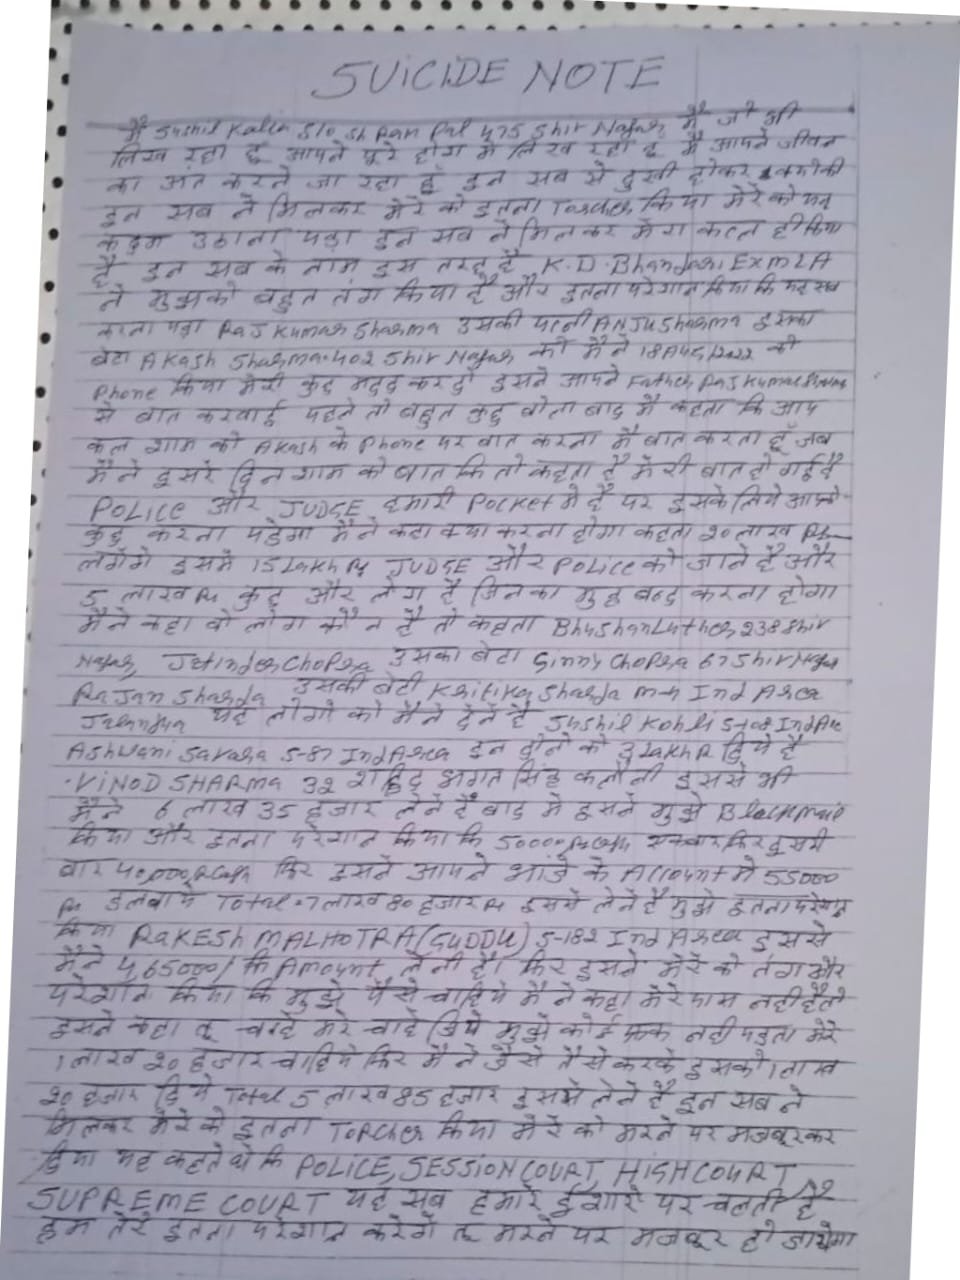 SUICIDE NOTE
मैं Sushil Kalia S/o Sh Ram Pal 475 Shiv Nagar मैं जो भी
लिख रहा हूं आपने पूरे होश में लिख रहा हूं मैं आपने जीवन
का अंत करने जा रहा हूँ इन सब से दुखी होकर क्योकी
इन सब ने मिलकर मेरे को इतना Torcher किया मेरे को यह
कदम उठाना पड़ा इन सब ने मिलकर मेरा कत्ल ही किया
है इन सब के नाम इस तरह है K.D.Bhandari Ex MLA
ने मुझको बहुत तंग किया है और इतना परेशान किया कि यह सब
करना पड़ा Raj Kumar Sharma उसकी पत्नी ANJU Sharma इसका
बेटा Akash Sharma 402 Shiv Nagar को मैंने 18 Aug, 2022 को
Phone किया मेरी कुछ मदद कर दो इसने आपने Father Raj Kumar Sharma
से बात करवाई पहले तो बहुत कुछ बोला बाद मैं कहता कि आप
कल शाम को Akash के Phone पर बात करना मैं बात करता हूँ जब
मैंने दुसरे दिन शाम को बात कि तो कहता है मेरी बात हो गई है
POLICE और JUDGE हमारी Pocket में है पर इसके लिये आपको
कुछ करना पड़ेगा मैंने कहा क्या करना होगा कहता 20 लाख Rs
लगेंगे इसमें 15 Lakh Rs JUDGE और POLICE को जाने है और
5 लाख Rs कुछ और लोग है जिनका मुह बन्द करना होगा
मैंने कहा वो लोग कौन है तो कहता Bhushan Luther 238 Shiv
Nagar, Jatinder Chopra उसका बेटा Ginny Chopra 67 Shiv Nagar
Rajan Sharda उसकी बेटी Kritika Sharda Ind Area
Jalandhar यह लोगो को मैंने देने है Sushil Kohli S-08 Ind Are
Ashwani S-87 Ind Area इन दोनो को 3 Lakh R दिये है
VINOD SHARMA 32 शहिद भगत सिंह कलौनी इससे भी
मैंने 6 लाख 35 हजार लेने है बाद मे इसने मुझे Blackmail
किया और इतना परेशान किया कि 50000 Rs Cash एकबार फिर दुसरी
बार 40,000 Rs Cash फिर इसने आपने भांजे के Account मे 55000
Rs डलवाये Total 7 लाख 80 हजार Rs इससे लेने है मुझे इतना परेशान
किया RAKESH MALHOTRA (GUDDU) S-182 Ind Area इससे
मैंने 4,65000/ कि Amount लेनी है। फिर इसने मेरे को तंग और
परेशान किया कि मुझे पैसे चाहिये मैंने कहा मेरे पास नही है तो
इसने कहा तू चाहे मरे चाहे जिये मुझे कोई फरक नही पड़ता मेरे
1 लाख 20 हजार चाहिये फिर मैंने जैसे तैसे करके इसको 1 लाख
20 हजार दिये Total 5 लाख 85 हजार इससे लेने है इन सब ने
मिलकर मेरे को इतना Torcher किया मेरे को मरने पर मजबूर कर
दिया यह कहते थे कि POLICE, SESSION COURT, HIGH COURT
SUPREME COURT यह सब हमारे ईशारो पर चलती है
हम तेरे इतना परेशान करेगें तू मरने पर मजबूर हो जायेगा